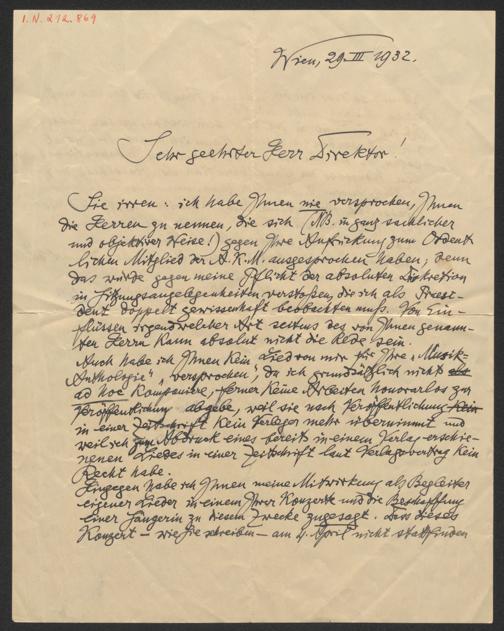 I.N. 212.869
Wien, 29. III 1932.
Sehr geehrter Herr Direktor!
Sie irren: ich habe Ihnen nie versprochen, Ihnen
die Herren zu nennen, die sich (NB. in ganz sachlicher
und objektiver Weise!) gegen Ihre Aufrückung zum Ordent-
lichen Mitglied der A.K.M. ausgesprochen haben; denn
das würde gegen meine Pflicht der absoluten Diskretion
in Sitzungsangelegenheiten verstoßen, die ich als Präsi-
dent doppelt gewissenhaft beobachten muß. Von Ein-
flüssen irgendwelcher Art seitens des von Ihnen genann-
ten Herrn kann absolut nicht die Rede sein.
Auch habe ich Ihnen kein Lied von mir für Ihre „Musik-
Anthologie" „versprochen", da ich grundsätzlich nicht
ad hoc komponiere, ferner keine Arbeiten honorarlos zur
Veröffentlichung abgebe, weil sie nach Veröffentlichung
in einer Zeitschrift kein Verleger mehr übernimmt und
weil ich zum Abdruck eines bereits in einem Verlag erschie-
nenen Liedes in einer Zeitschrift laut Verlagsvertrag kein
Recht habe.
Hingegen habe ich Ihnen meine Mitwirkung als Begleiter
eigener Lieder in einem Ihrer Konzerte und die Beschaffung
einer Sängerin zu diesem Zwecke zugesagt. Da dieses
Konzert – wie Sie schreiben – am 4. April nicht stattfinden